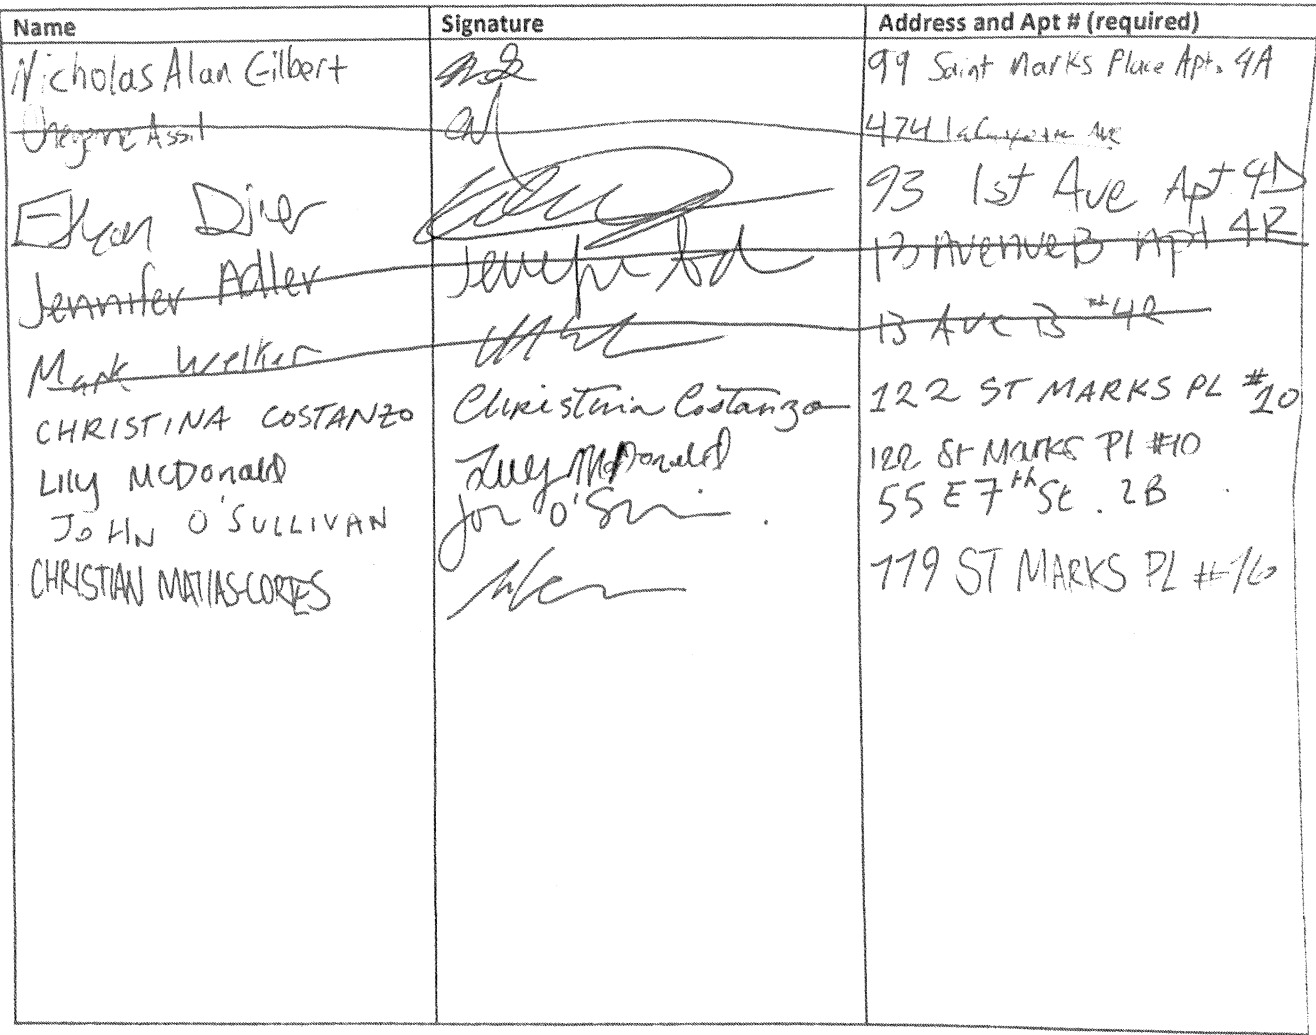 Name Signature Address and Apt # (required)
Nicholas Alan Gilbert 99 Saint Marks Place Apt. 4A
Cheyenne 474 Ave
93 1st Ave Apt 4D
Jennifer Adler 13 Avenue B Apt 4R
Mark Welker 13 Ave B #4R
CHRISTINA COSTANZO Christina Costanzo 122 ST MARKS PL #10
Lily McDonald Lily McDonald 122 St Marks Pl #10
JOHN O'SULLIVAN 55 E 7th St. 2B
CHRISTIAN MATIAS-CORTES 119 ST MARKS PL #16